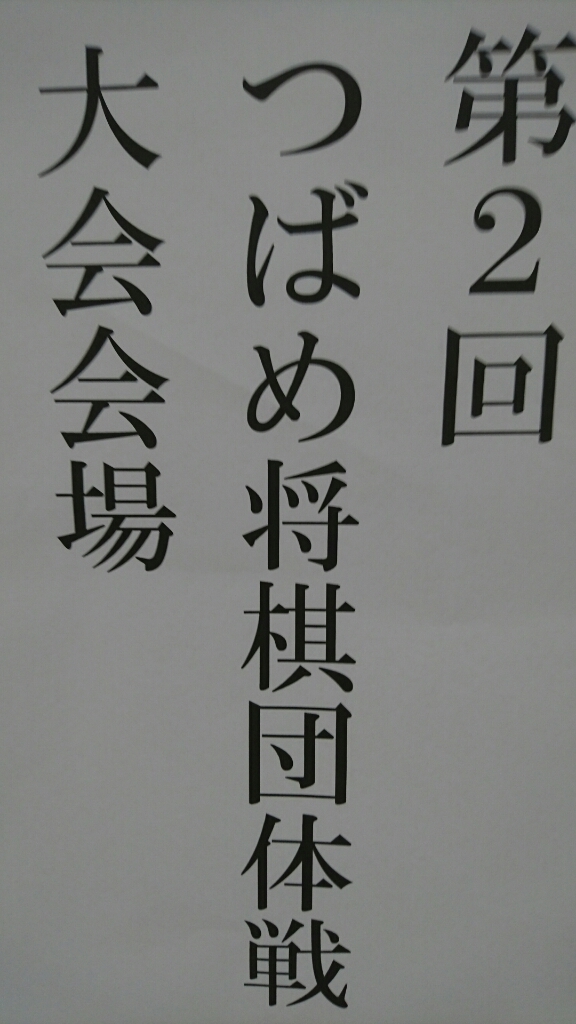 第2回
つばめ将棋団体戦
大会会場